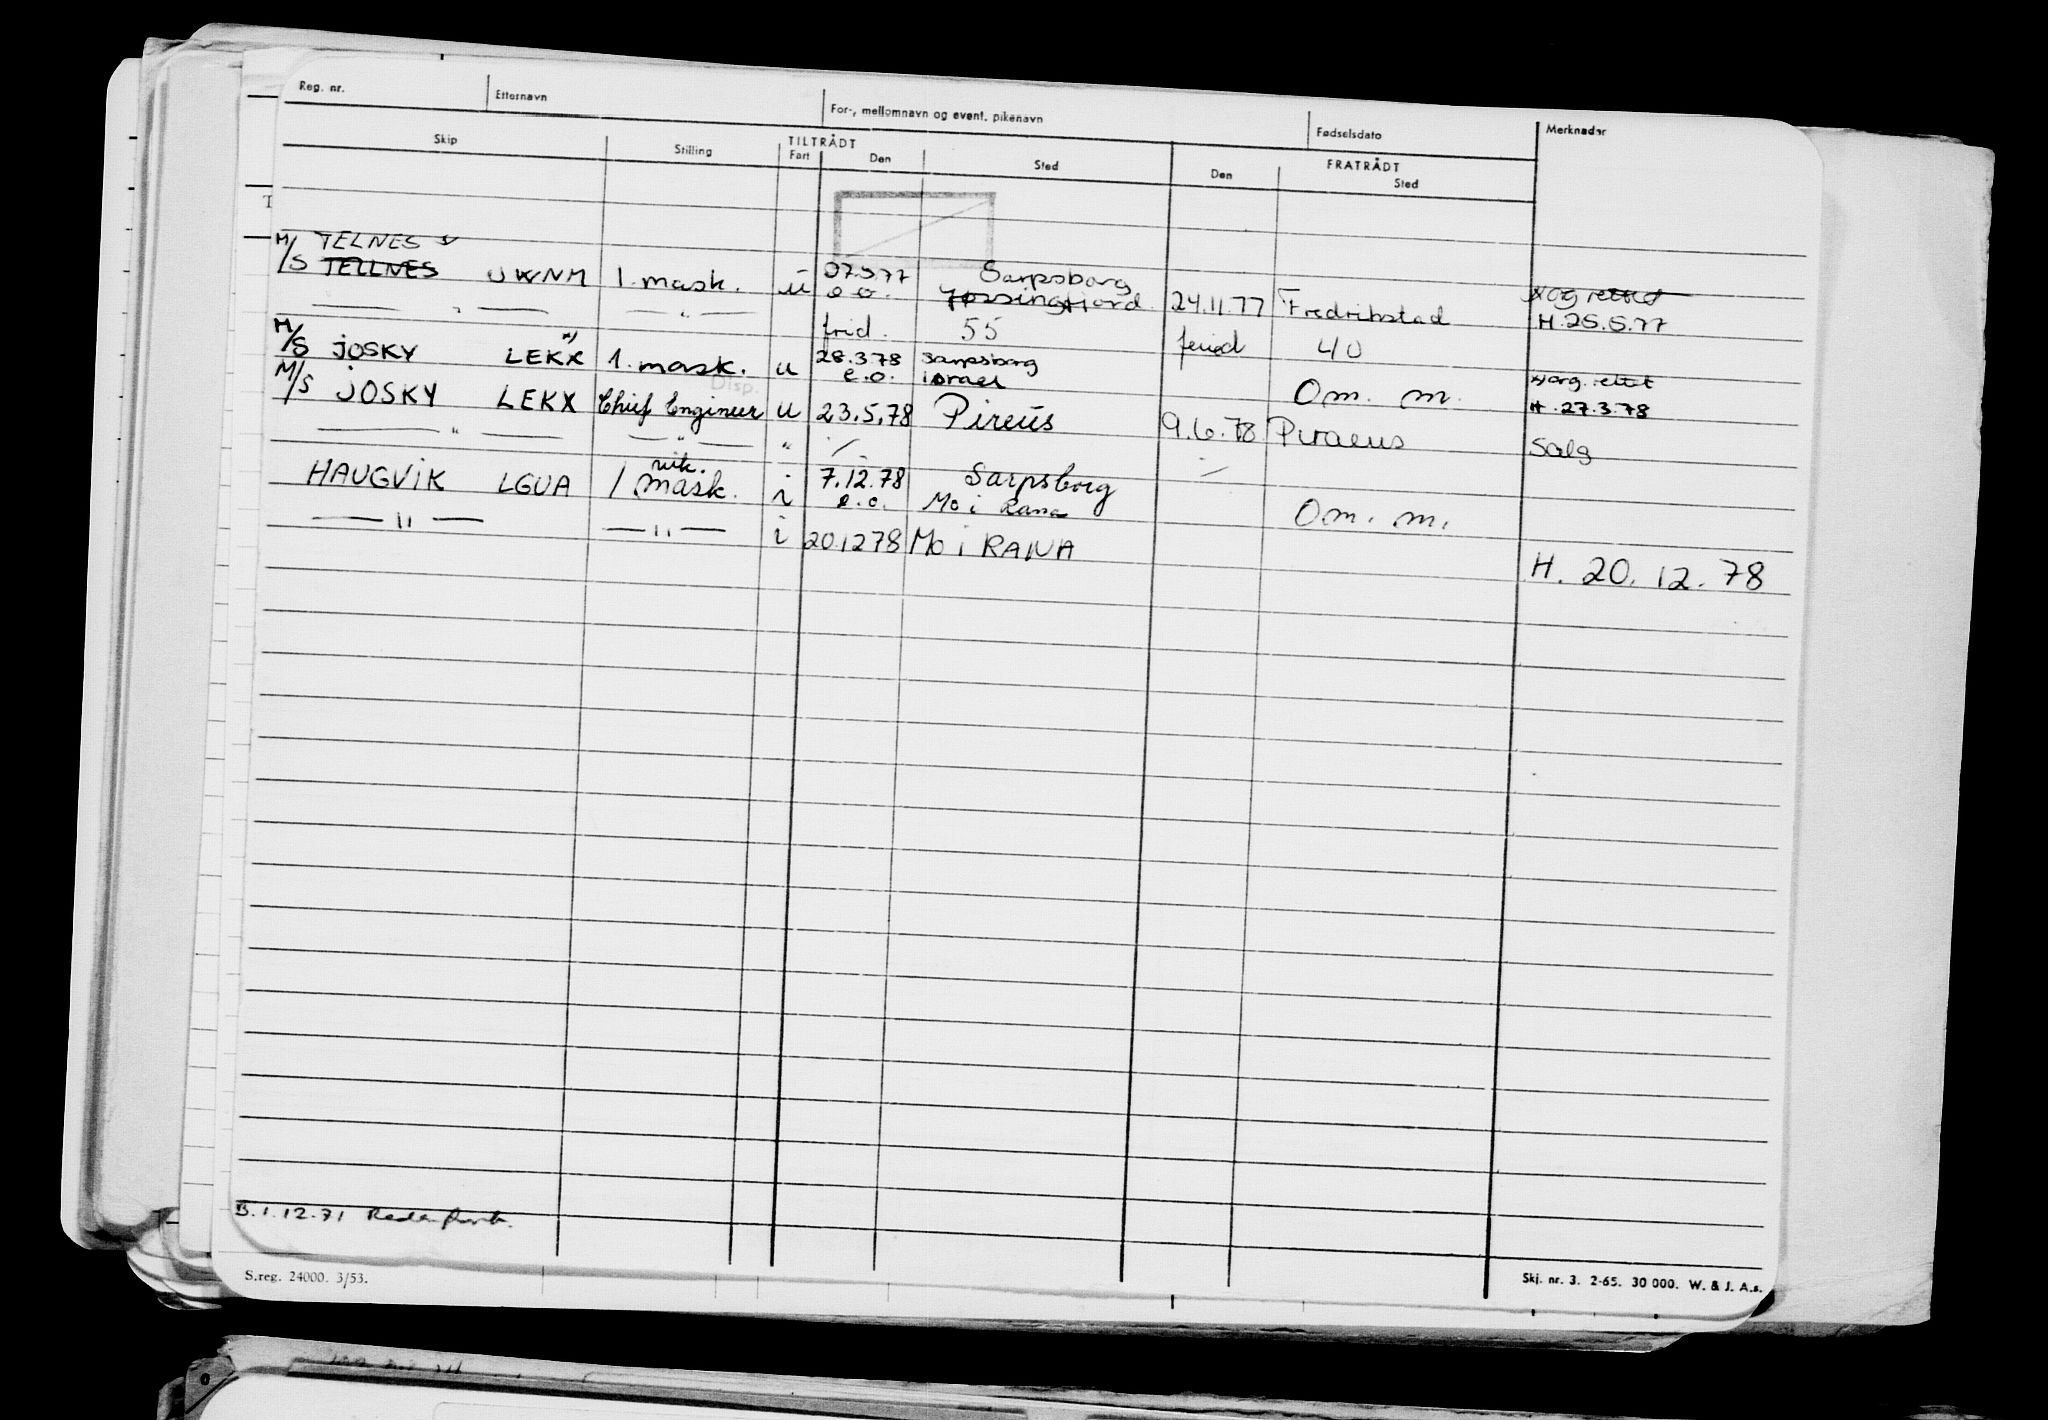 Reg. nr. Etternavn For-, mellomnavn og event. pikenavn Fødselsdato Merknader
Skip Stilling TILTRÅDT Fart Den Sted FRATRÅDT Den Sted
M/S TELNES
TELLNES JWNM 1. mask. u 07.5.77 e.o. Sarpsborg Jøssingfjord 24.11.77 Fredrikstad x) og rettet H. 25.5.77
— " — — " — frid. 55 feried 40
M/S JOSKY LEKX x) 1. mask. u 28.3.78 e.o. Sarpsborg israel Om. m. x) org. rettet H. 27.3.78
Disp.
M/S JOSKY LEKX Chief Engineer u 23.5.78 Pireús 9.6.78 Piraeus Salg
— " — — " — "
HAUGVIK LGUA 1 vik. mask. i 7.12.78 e.o. Sarpsborg Mo i Rana Om. m.
— " — — " — i 201278 Mo i RANA H. 20.12.78
B. 1.12.71
S.reg. 24000. 3/53.
Skj. nr. 3. 2-65. 30 000. W. & J. A.s.